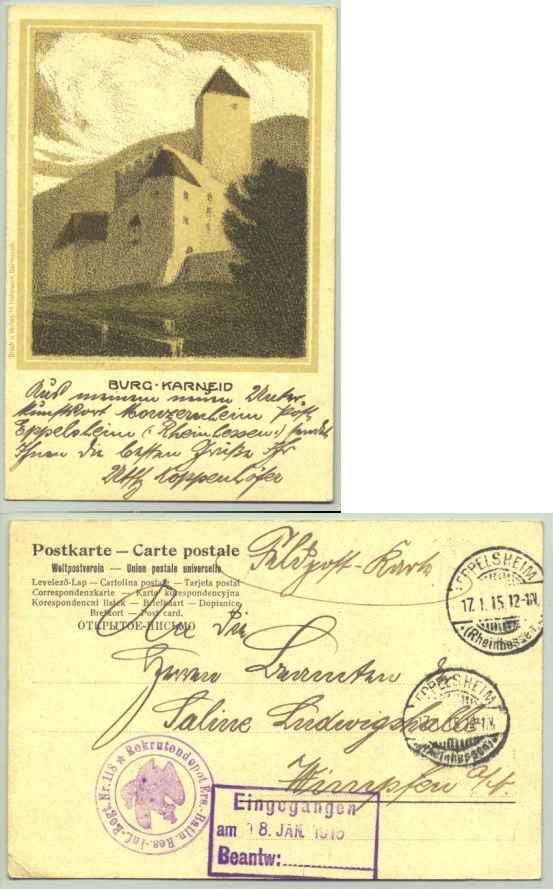 BURG-KARNEID
Aus meinem neuen Unter-
kunftsort Monzernheim Post
Eppelsheim (Rheinhessen) sendet
Ihnen die besten Grüße Ihr
Uffz Koppenhöfer
Postkarte — Carte postale
Weltpostverein — Union postale universelle
Levelező-Lap — Cartolina postale — Tarjeta postal
Correspondenzkarte — Karta korespondencyjna
Korespondenční lístek — Briefkaart — Dopisnice
Brefkort — Post card.
ОТКРЫТОЕ ПИСЬМО
Feldpost-Karte
An die
Herren Beamten d.
Saline Ludwigshalle
Wimpfen a/N.
EPPELSHEIM
17. 1. 15. 12-1N.
(Rheinhessen)
EPPELSHEIM
17. 1. 15. 12-1N.
(Rheinhessen)
Rekrutendepot Ers. Batln. Res.-Inf.-Regt. Nr. 118
Eingegangen
am 18. JAN. 1915
Beantw: